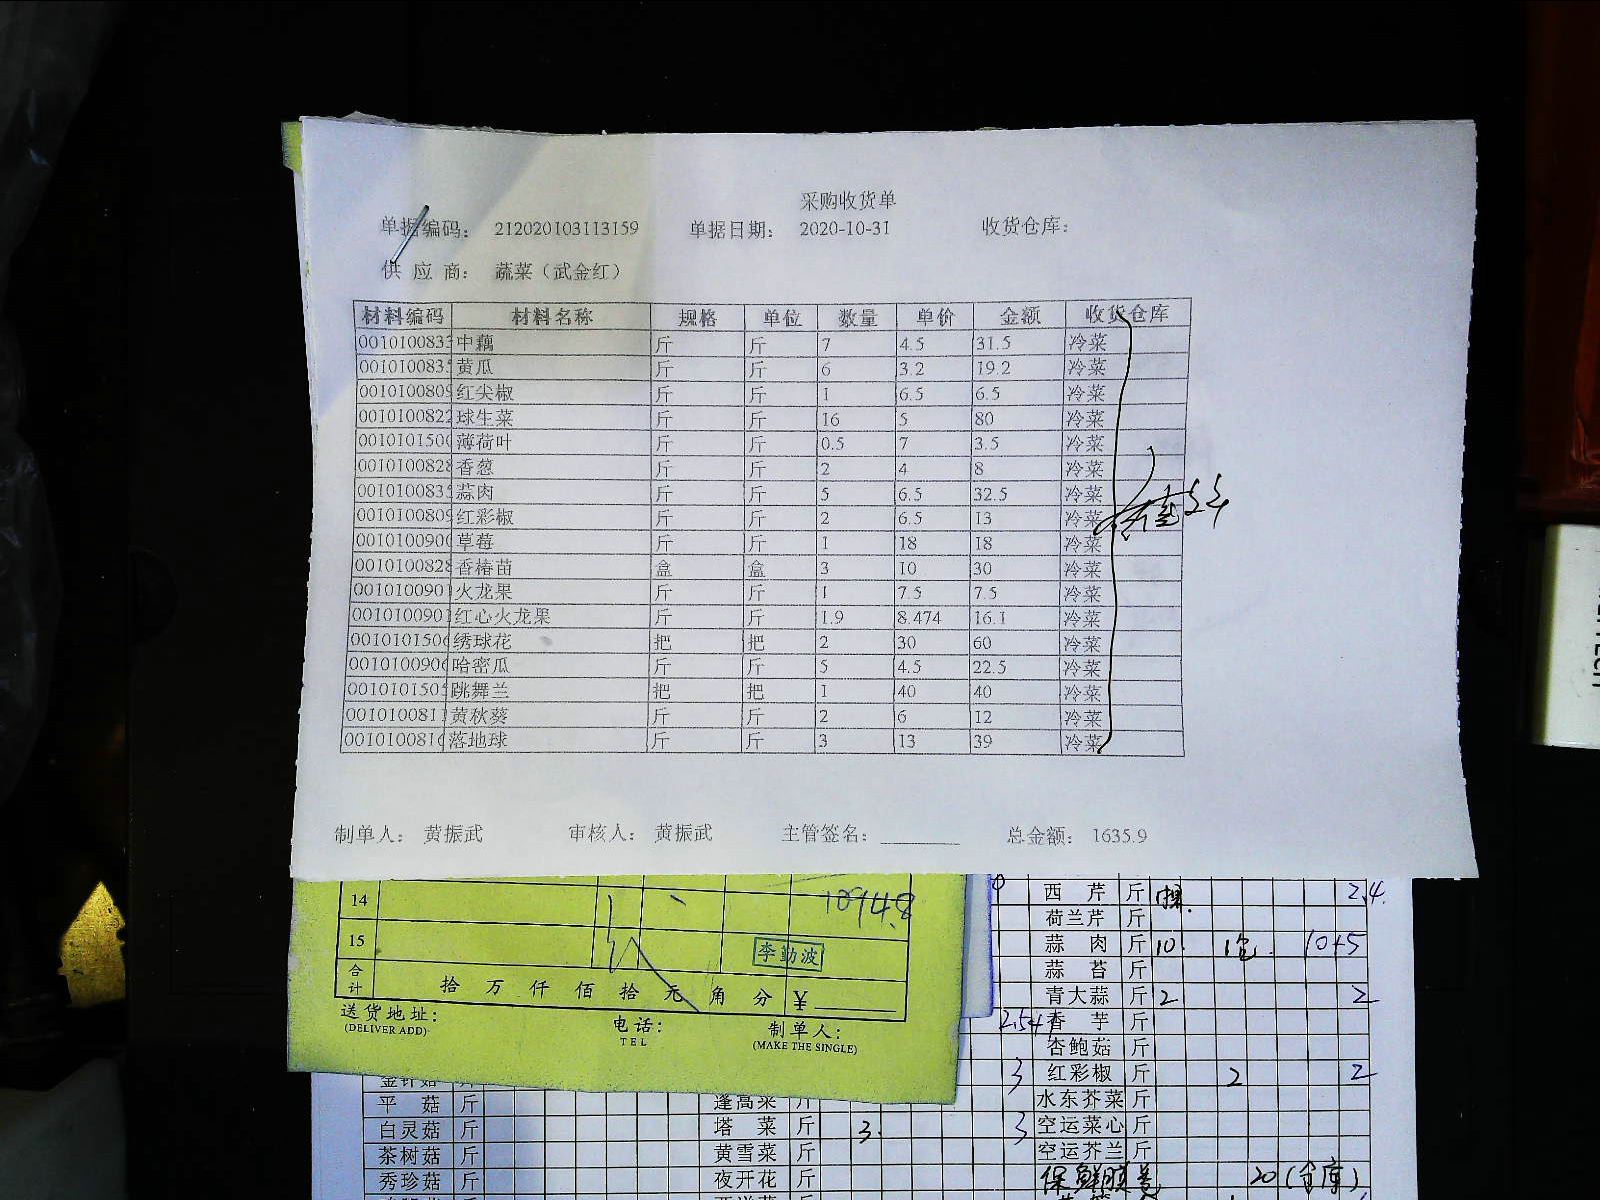 采购收货单
单据编码： 212020103113159 单据日期： 2020-10-31 收货仓库：
供 应 商： 蔬菜（武金红）
材料编码 材料名称 规格 单位 数量 单价 金额 收货仓库
0010100833 中藕 斤 斤 7 4.5 31.5 冷菜
001010083 黄瓜 斤 斤 6 3.2 19.2 冷菜
0010100809 红尖椒 斤 斤 1 6.5 6.5 冷菜
0010100822 球生菜 斤 斤 16 5 80 冷菜
001010150 薄荷叶 斤 斤 0.5 7 3.5 冷菜
0010100828 香葱 斤 斤 2 4 8 冷菜
001010083 蒜肉 斤 斤 5 6.5 32.5 冷菜
0010100809 红彩椒 斤 斤 2 6.5 13 冷菜
001010090 草莓 斤 斤 1 18 18 冷菜
0010100828 香椿苗 盒 盒 3 10 30 冷菜
001010090 火龙果 斤 斤 1 7.5 7.5 冷菜
001010090 红心火龙果 斤 斤 1.9 8.474 16.1 冷菜
001010150 绣球花 把 把 2 30 60 冷菜
001010090 哈密瓜 斤 斤 5 4.5 22.5 冷菜
001010150 跳舞兰 把 把 1 40 40 冷菜
001010081 黄秋葵 斤 斤 2 6 12 冷菜
001010081 落地球 斤 斤 3 13 39 冷菜
制单人： 黄振武 审核人： 黄振武 主管签名： 总金额： 1635.9
14 1094.8
15 李勤波
合计 拾 万 仟 佰 拾 元 角 分 ￥
送货地址： 电话： 制单人：
(DELIVER ADD) TEL (MAKE THE SINGLE)
西芹 斤 2.4
荷兰芹 斤
蒜肉 斤 10 1包 10+5
蒜苔 斤
青大蒜 斤 2 2
香芋 斤
杏鲍菇 斤
金针菇 斤 3 红彩椒 斤 2 2
平菇 斤 蓬高菜 斤 水东芥菜 斤
白灵菇 斤 塔菜 斤 3 3 空运菜心 斤
茶树菇 斤 黄雪菜 斤 空运芥兰 斤
秀珍菇 斤 夜开花 斤 保鲜膜 20